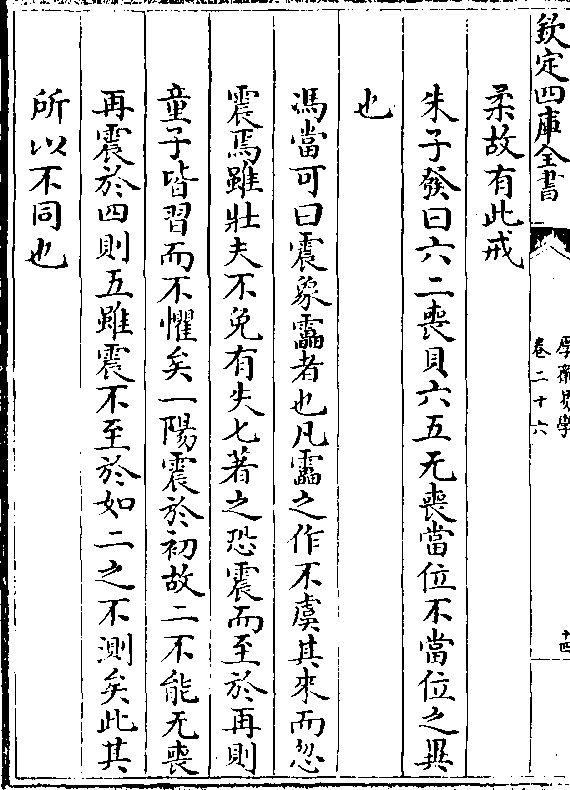 欽定四庫全書
厚齋易學
卷二十六
十四
柔故有此戒
朱子發曰六二喪貝六五无喪當位不當位之異
也
馮當可曰震象靁者也凡靁之作不虞其來而忽
震焉雖壯夫不免有失匕著之恐震而至於再則
童子皆習而不懼矣一陽震於初故二不能无喪
再震於四則五雖震不至於如二之不測矣此其
所以不同也